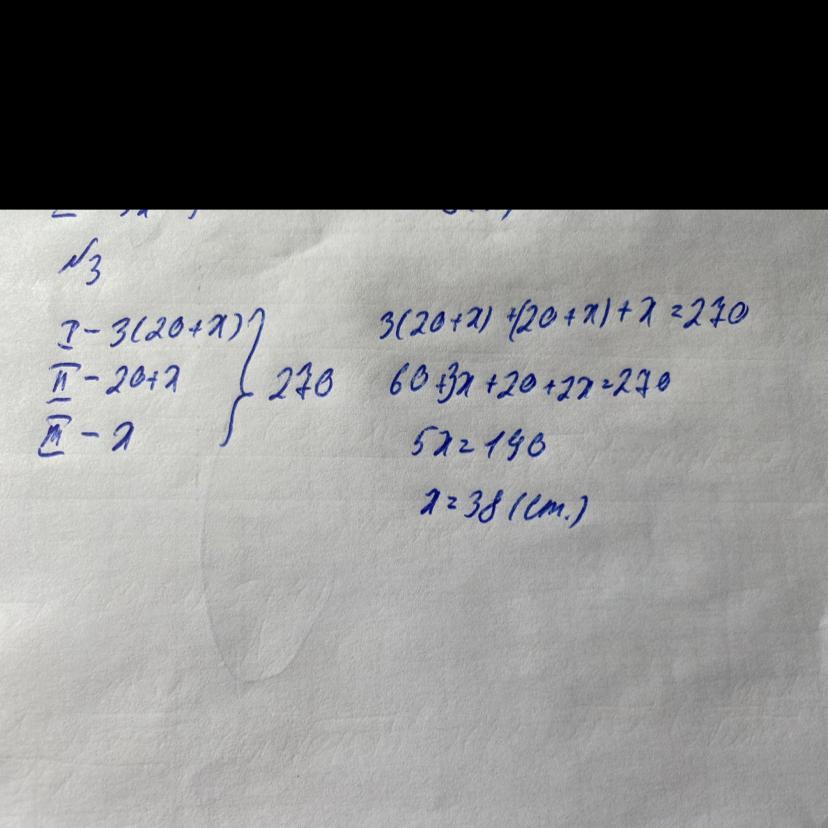 №3
I - 3(20+x)
II - 20+x } 270
III - x
3(20+x)+(20+x)+x=270
60+3x+20+2x=270
5x=190
x=38 (ст.)